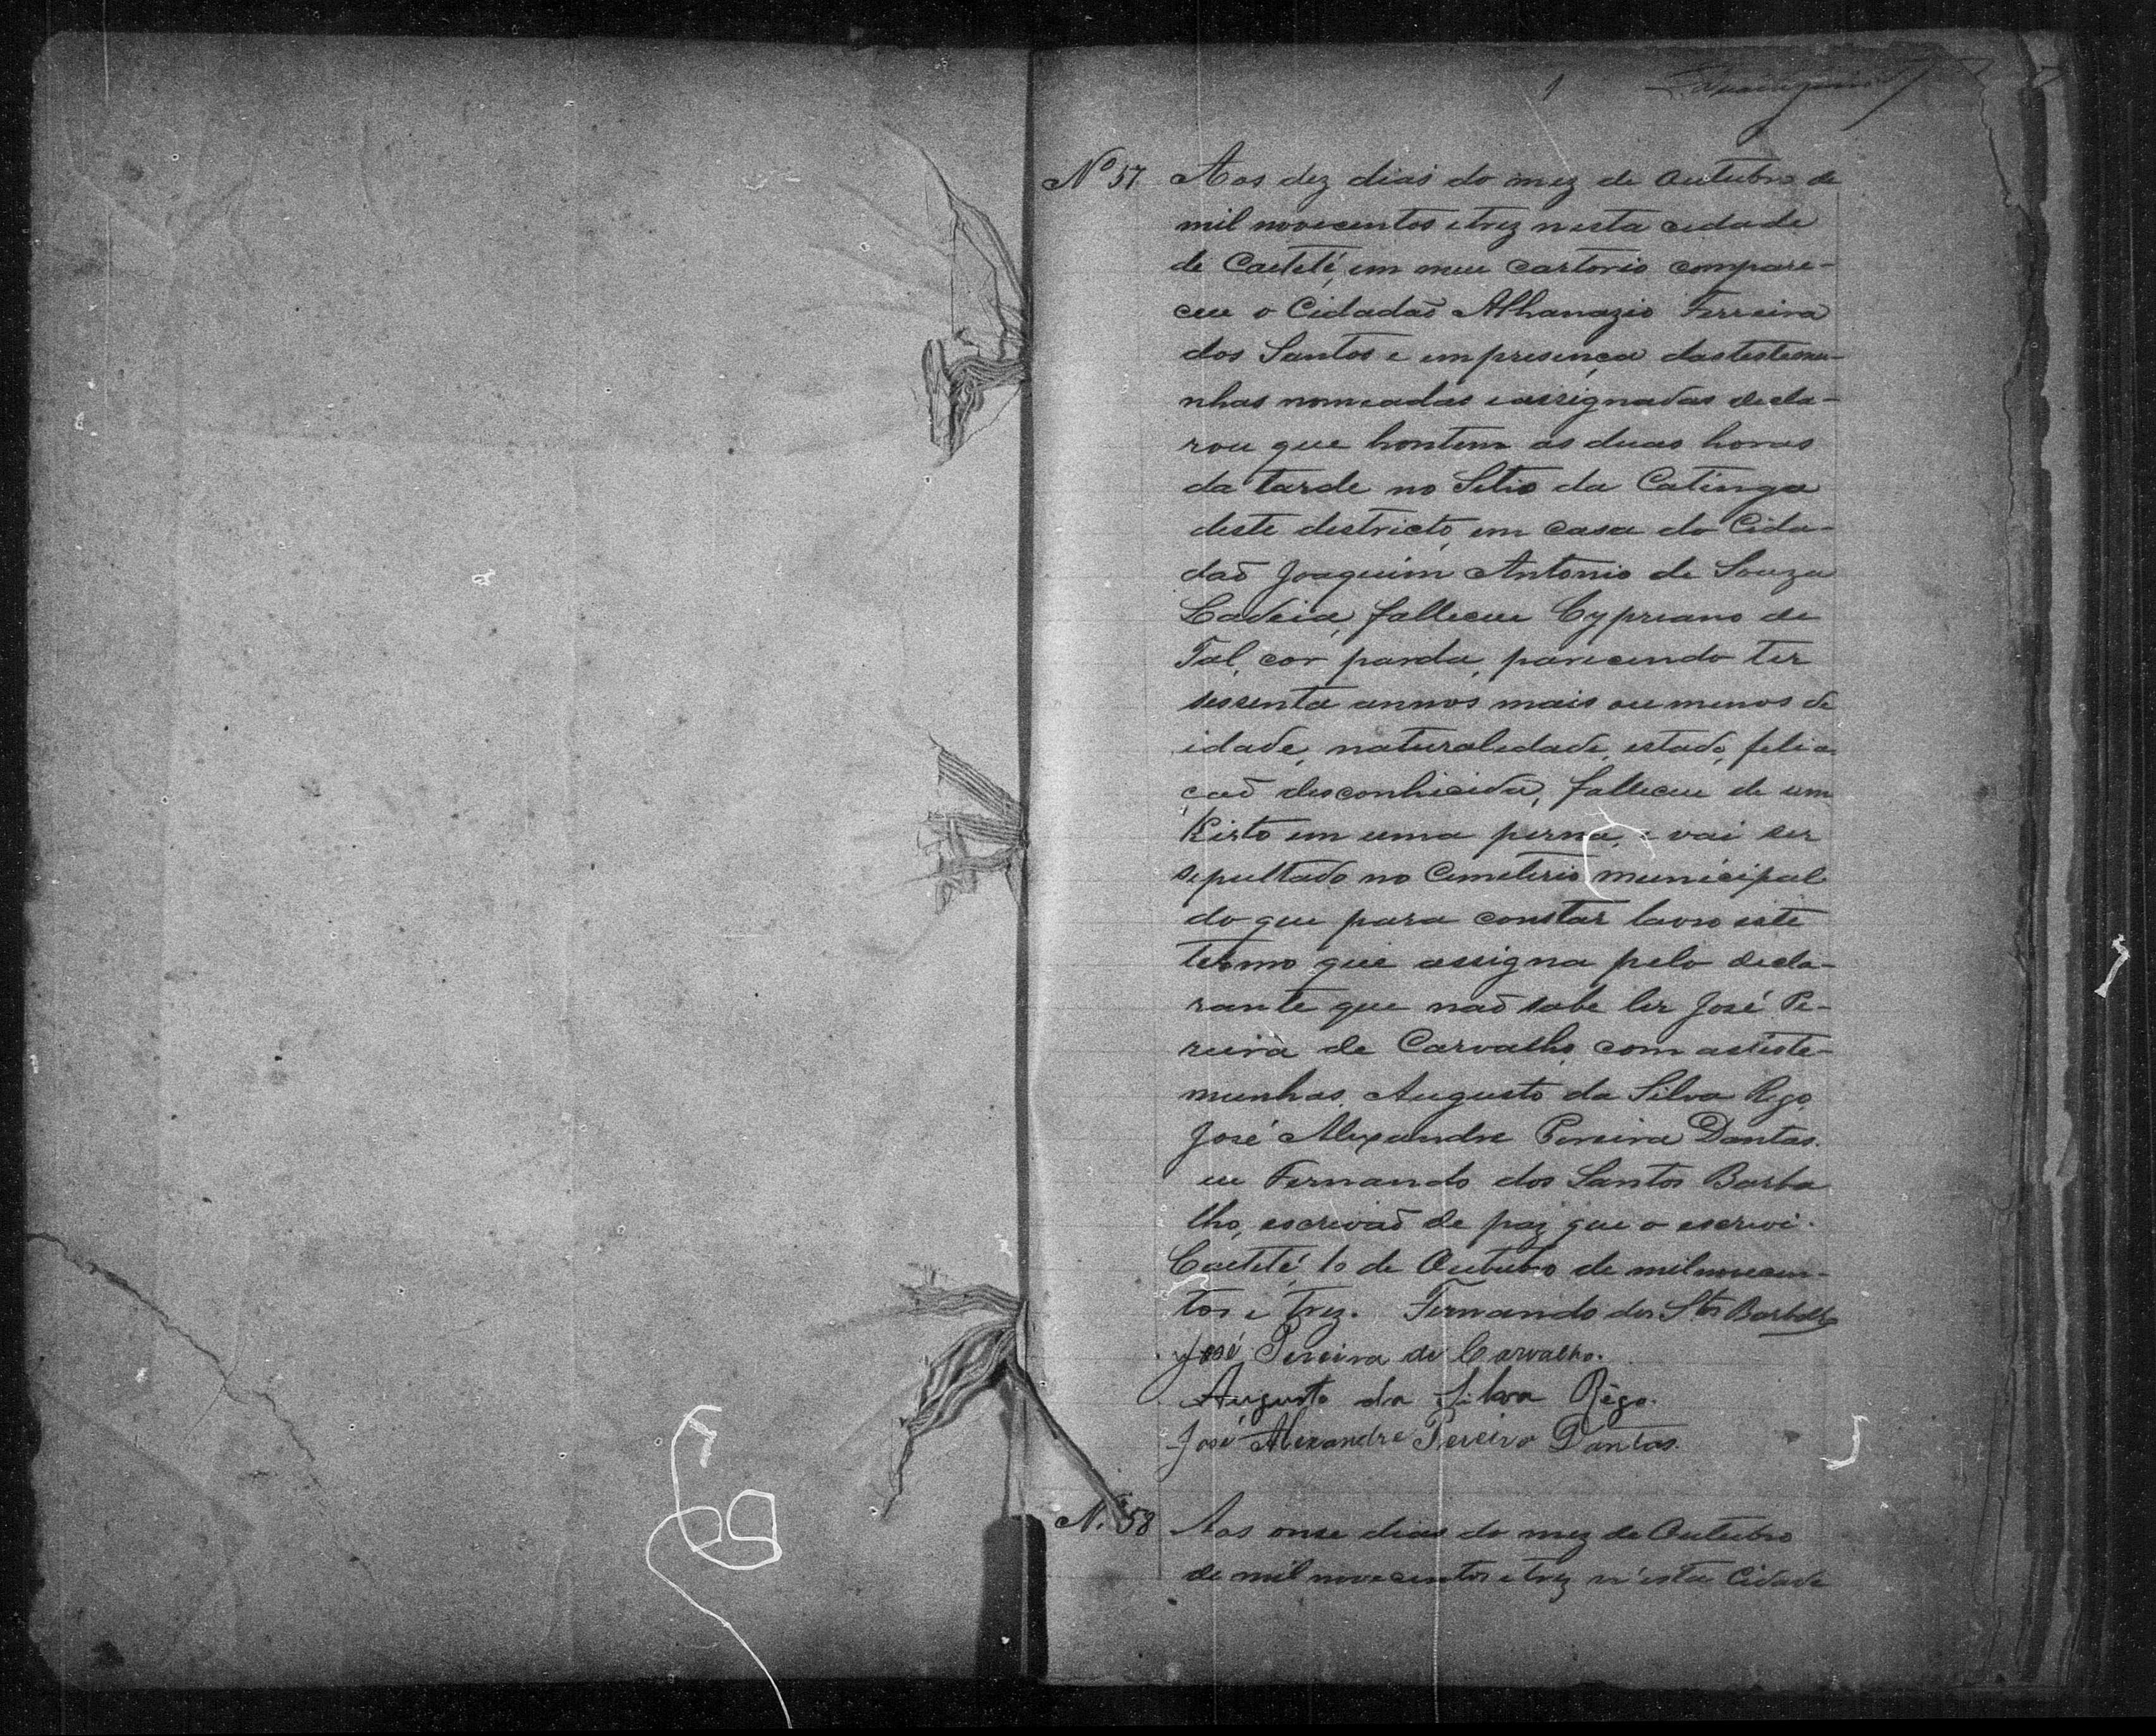 1
Nº 57 Aos dez dias do mez de Outubro de
mil novecentos e trez nesta cidade
de Caeteté, em meu cartorio compare-
ceu o Cidadaõ Athanazio Ferreira
dos Santos e em presença das testemu-
nhas nomeadas e assignadas decla-
rou que hontem as duas horas
da tarde no Sitio da Catinga
deste destricto, em casa do Cida-
daõ Joaquim Antonio de Souza
Ladeia, falleceu Cypriano de
Tal, cor parda, parecendo ter
sessenta annos mais ou menos de
idade, naturaledade, estado, felia-
caõ desconhecida, falleceu de um
Kisto em uma perna, e vai ser
sepultado no Cemeterio municipal
do que para constar lavro este
termo que assigna pelo decla-
rante que naõ sabe ler José Pe-
reira de Carvalho, com as teste-
munhas, Augusto da Silva Rego,
José Alexandre Pereira Dantas.
eu Fernando dos Santos Barba
lho, escrivaõ de paz que o escrevi.
Caeteté, 10 de Outubro de mil novecen-
tos e trez. Fernando dos Stos Barbalho
José Pereira de Carvalho.
Augusto da Silva Rêgo.
José Alexandre Pereira Dantas.
N. 58 Aos onse dias do mez de Outubro
de mil novecentos e trez n'esta Cidade